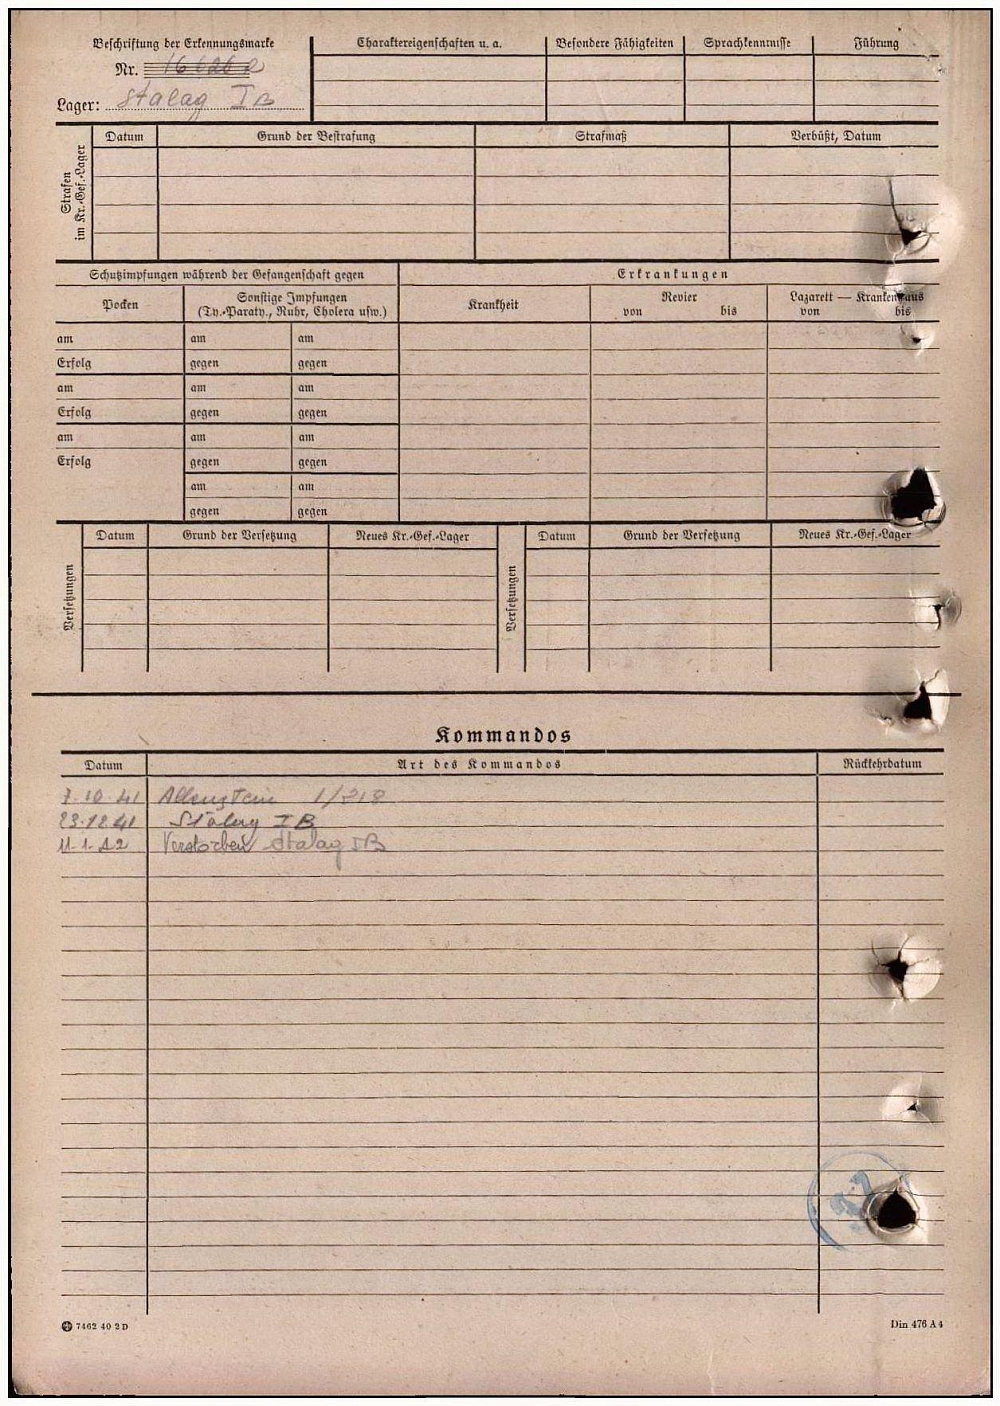 Beschriftung der Erkennungsmarke
Nr.
Lager: Stalag IB
Charaktereigenschaften u. a.
Besondere Fähigkeiten
Sprachkenntnisse
Führung
Strafen
im Kr.-Gef.-Lager
Datum
Grund der Bestrafung
Strafmaß
Verbüßt, Datum
Schutzimpfungen während der Gefangenschaft gegen
Erkrankungen
Pocken
Sonstige Impfungen
(Ty.-Paraty., Ruhr, Cholera usw.)
Krankheit
Revier
von bis
Lazarett — Krankenhaus
von bis
am am am
Erfolg gegen gegen
am am am
Erfolg gegen gegen
am am am
Erfolg gegen gegen
am am
gegen gegen
Versetzungen
Datum
Grund der Versetzung
Neues Kr.-Gef.-Lager
Versetzungen
Datum
Grund der Versetzung
Neues Kr.-Gef.-Lager
Kommandos
Datum
Art des Kommandos
Rückkehrdatum
7.10.41 Allenstein 1/218
23.12.41 Stalag IB
11.1.42 Verstorben Stalag IB
7462 40 2D
Din 476 A4